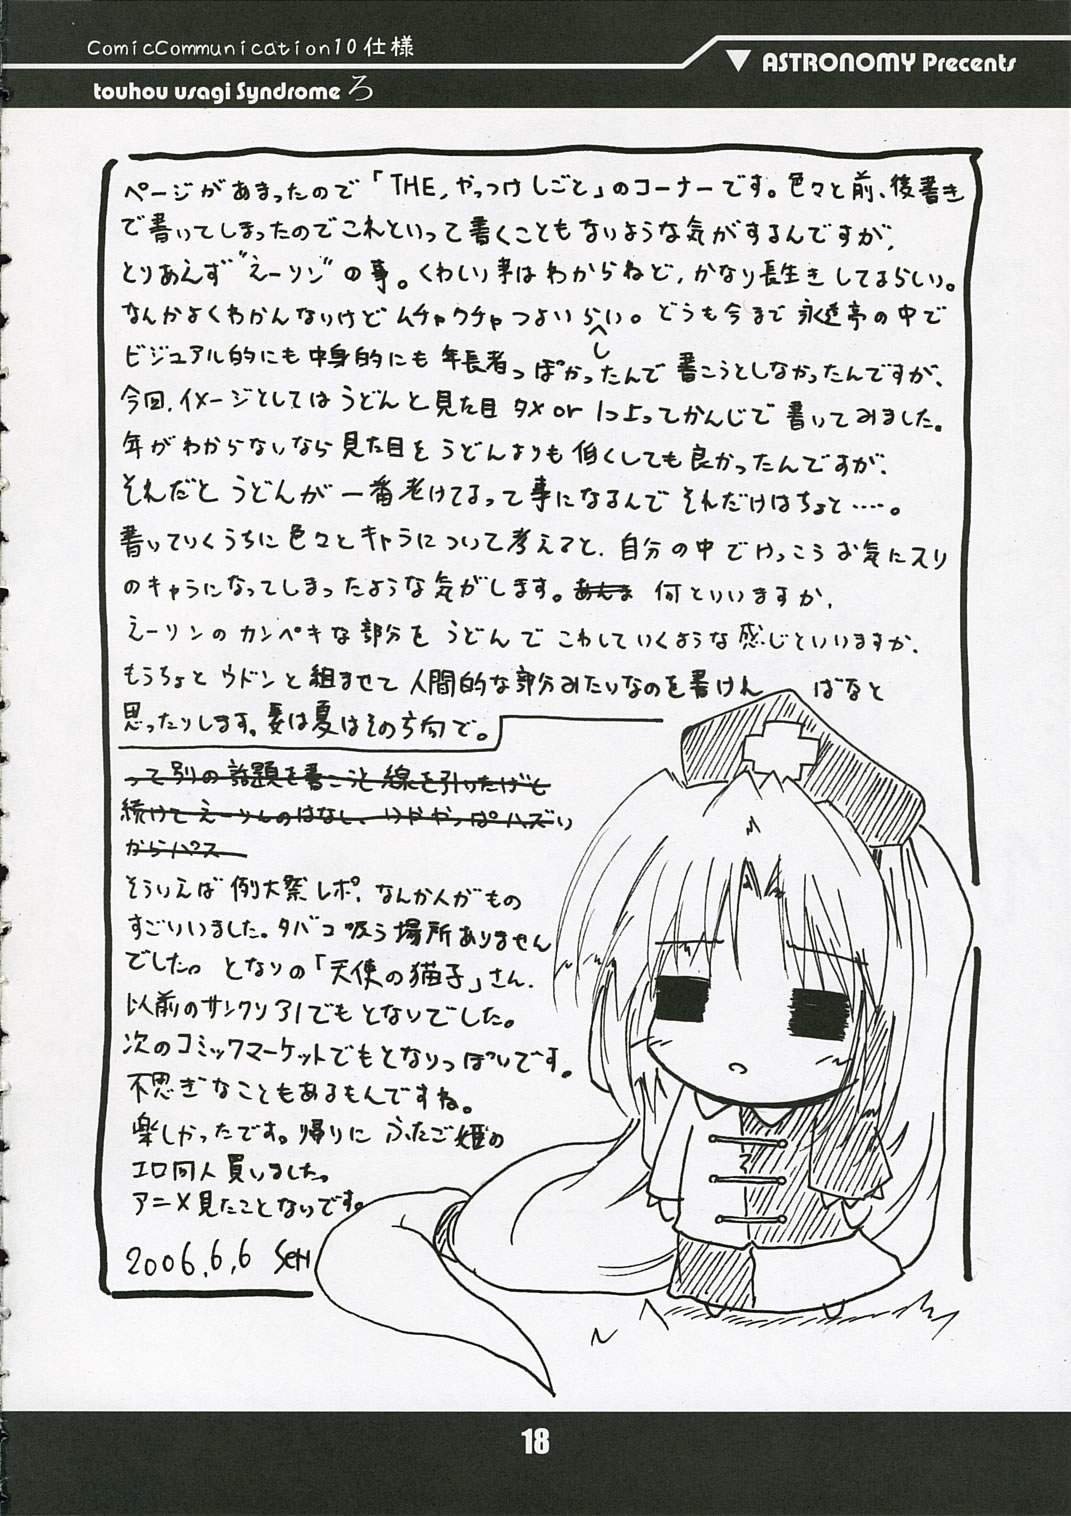 ComicCommunication10仕様
touhou usagi Syndrome ろ
▼ ASTRONOMY Precents
ページがあまったので「THE,やっつけしごと」のコーナーです。色々と前、後書き
で書いてしまったのでこれといって書くこともないような気がするんですが、
とりあえず"えーリン"の事。くわしい事はわからねど,かなり長生きしてるらしい。
なんかよくわかんないけどムチャクチャつよいらしい。どうも今まで永遠亭の中で
ビジュアル的にも中身的にも年長者っぽかったんで書こうとしなかったんですが、
今回,イメージとしてはうどんと見た目タメor1つ上ってかんじで書いてみました。
年がわからないなら見た目をうどんよりも低くしても良かったんですが、
それだとうどんが一番老けてるって事になるんでそれだけはちょと……。
書いていくうちに色々とキャラについて考えてと、自分の中でけっこうお気にスリ
のキャラになってしまったような気がします。あんま 何といいますか,
えーリンのカンペキな部分をうどんでこわしていくような感じといいますか、
もうちょとウドンと組ませて人間的な部分みたいなのを書けん ばなと
思ったりします。妻は夏はその方向で。
って別の話題を書こうと線を引いたけど
続けてえーりんのはなし、けどやっぱハズい
からパス
そういえば例大祭レポ,なんか人がもの
すごいいました。タバコ吸う場所ありません
でした。となりの「天使の猫子」さん、
以前のサンクリ31でもとなりでした。
次のコミックマーケットでもとなりっぽいです。
不思ぎなこともあるもんですね。
楽しかったです。帰りにふたご姫の
エロ同人買いました。
アニメ見たことないです。
2006,6,6 SeN
18